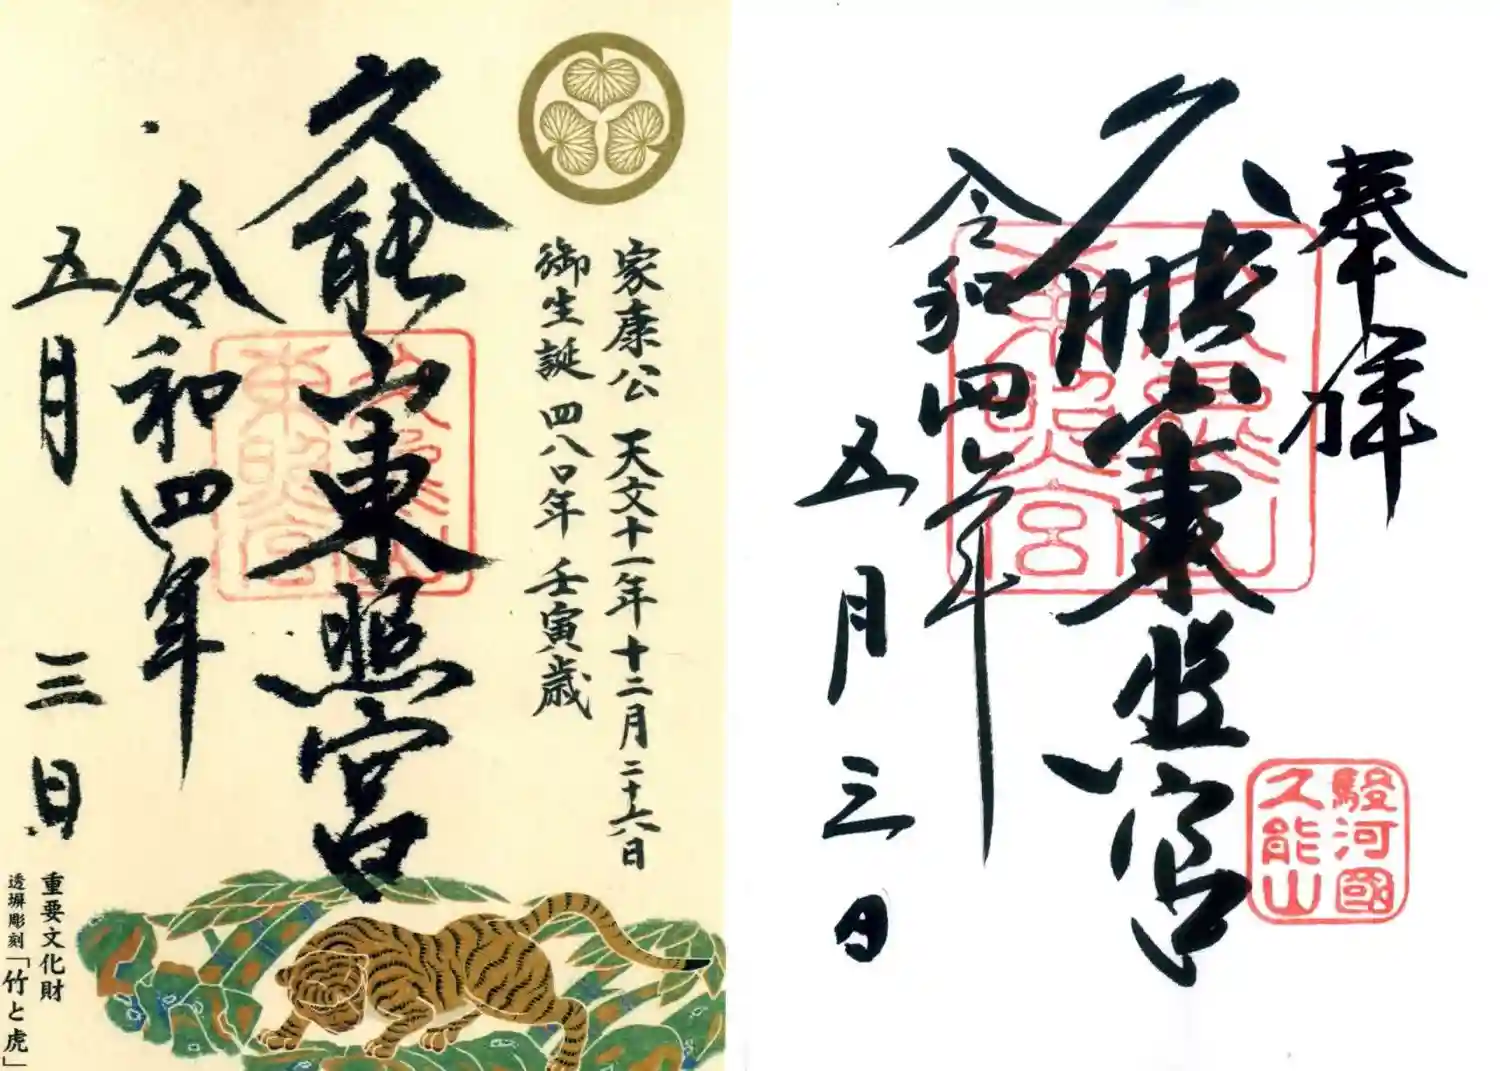 奉拝
久能山東照宮
令和四年
五月三日
久能山東照宮
駿河國
久能山
家康公 天文十一年十二月二十六日
御生誕 四八〇年 壬寅歳
久能山東照宮
令和四年
五月三日
久能山東照宮
重要文化財
透塀彫刻「竹と虎」